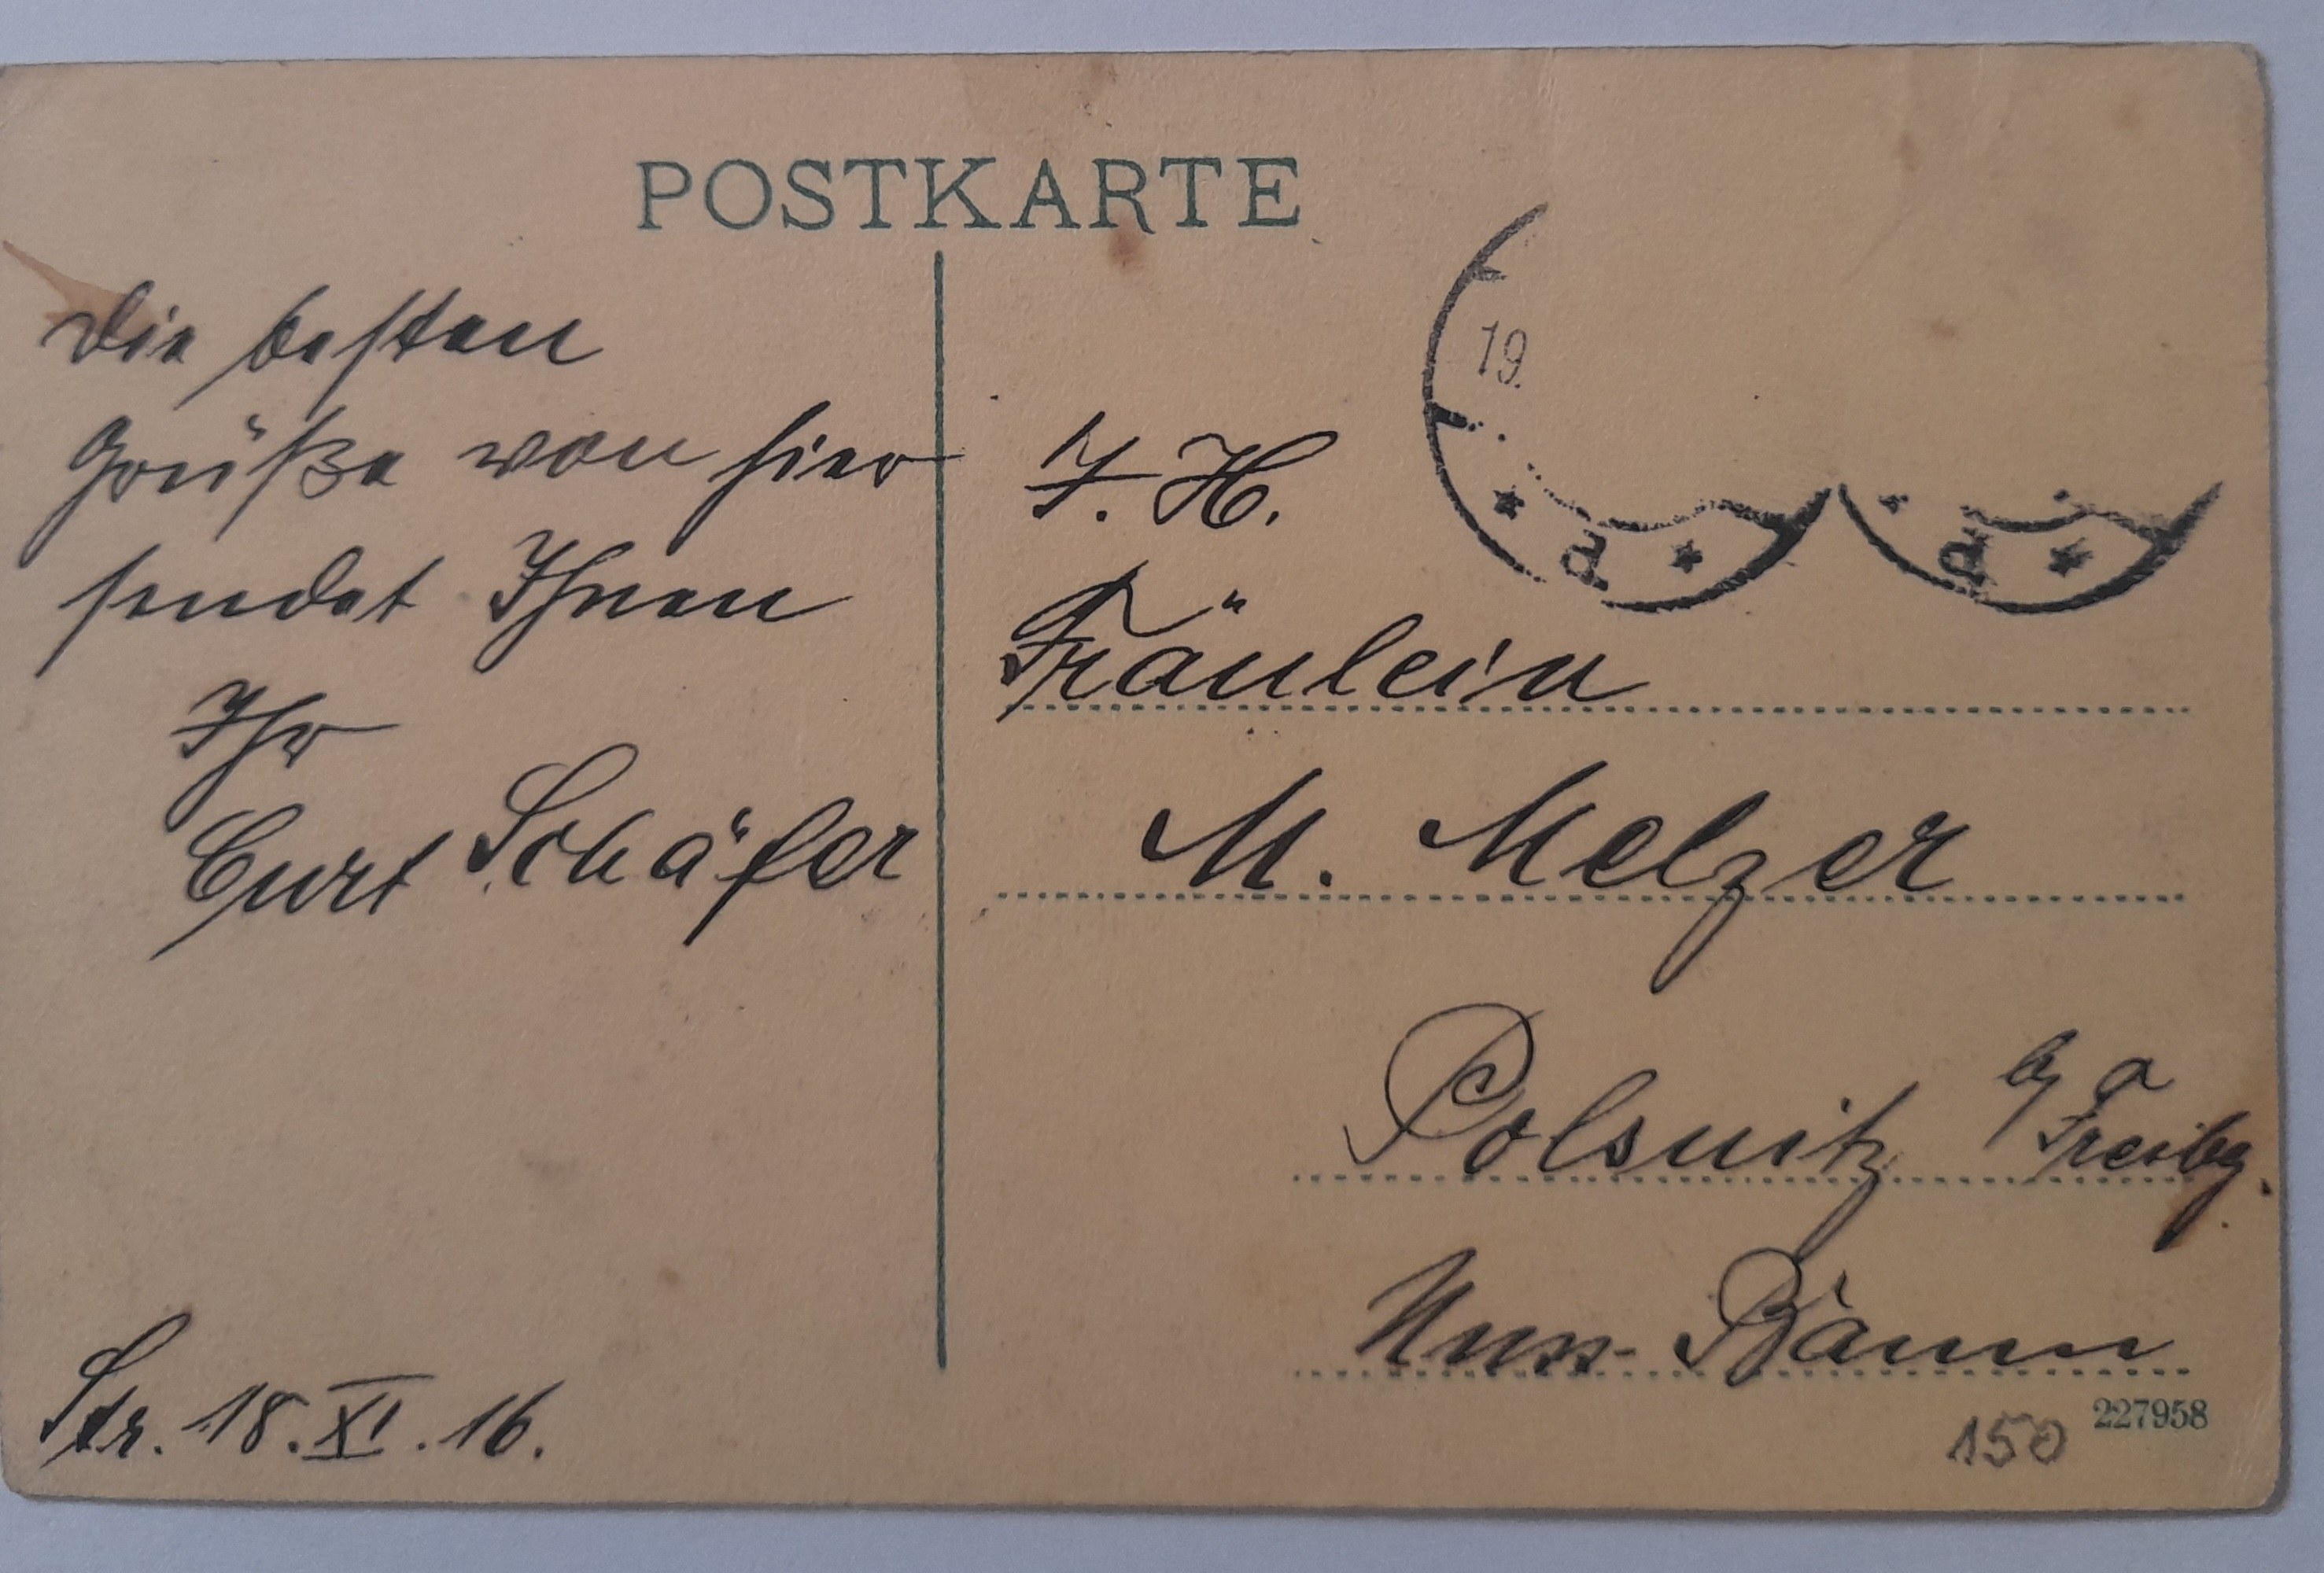 POSTKARTE
Die besten
Grüße von hier
sendet Ihnen
Ihr
Curt Schäfer
Str. 18. XI. 16.
19.
a
a
I. H.
Fräulein
M. Melzer
Polsnitz
Freibg.
Nuss- Bäum
150
227958